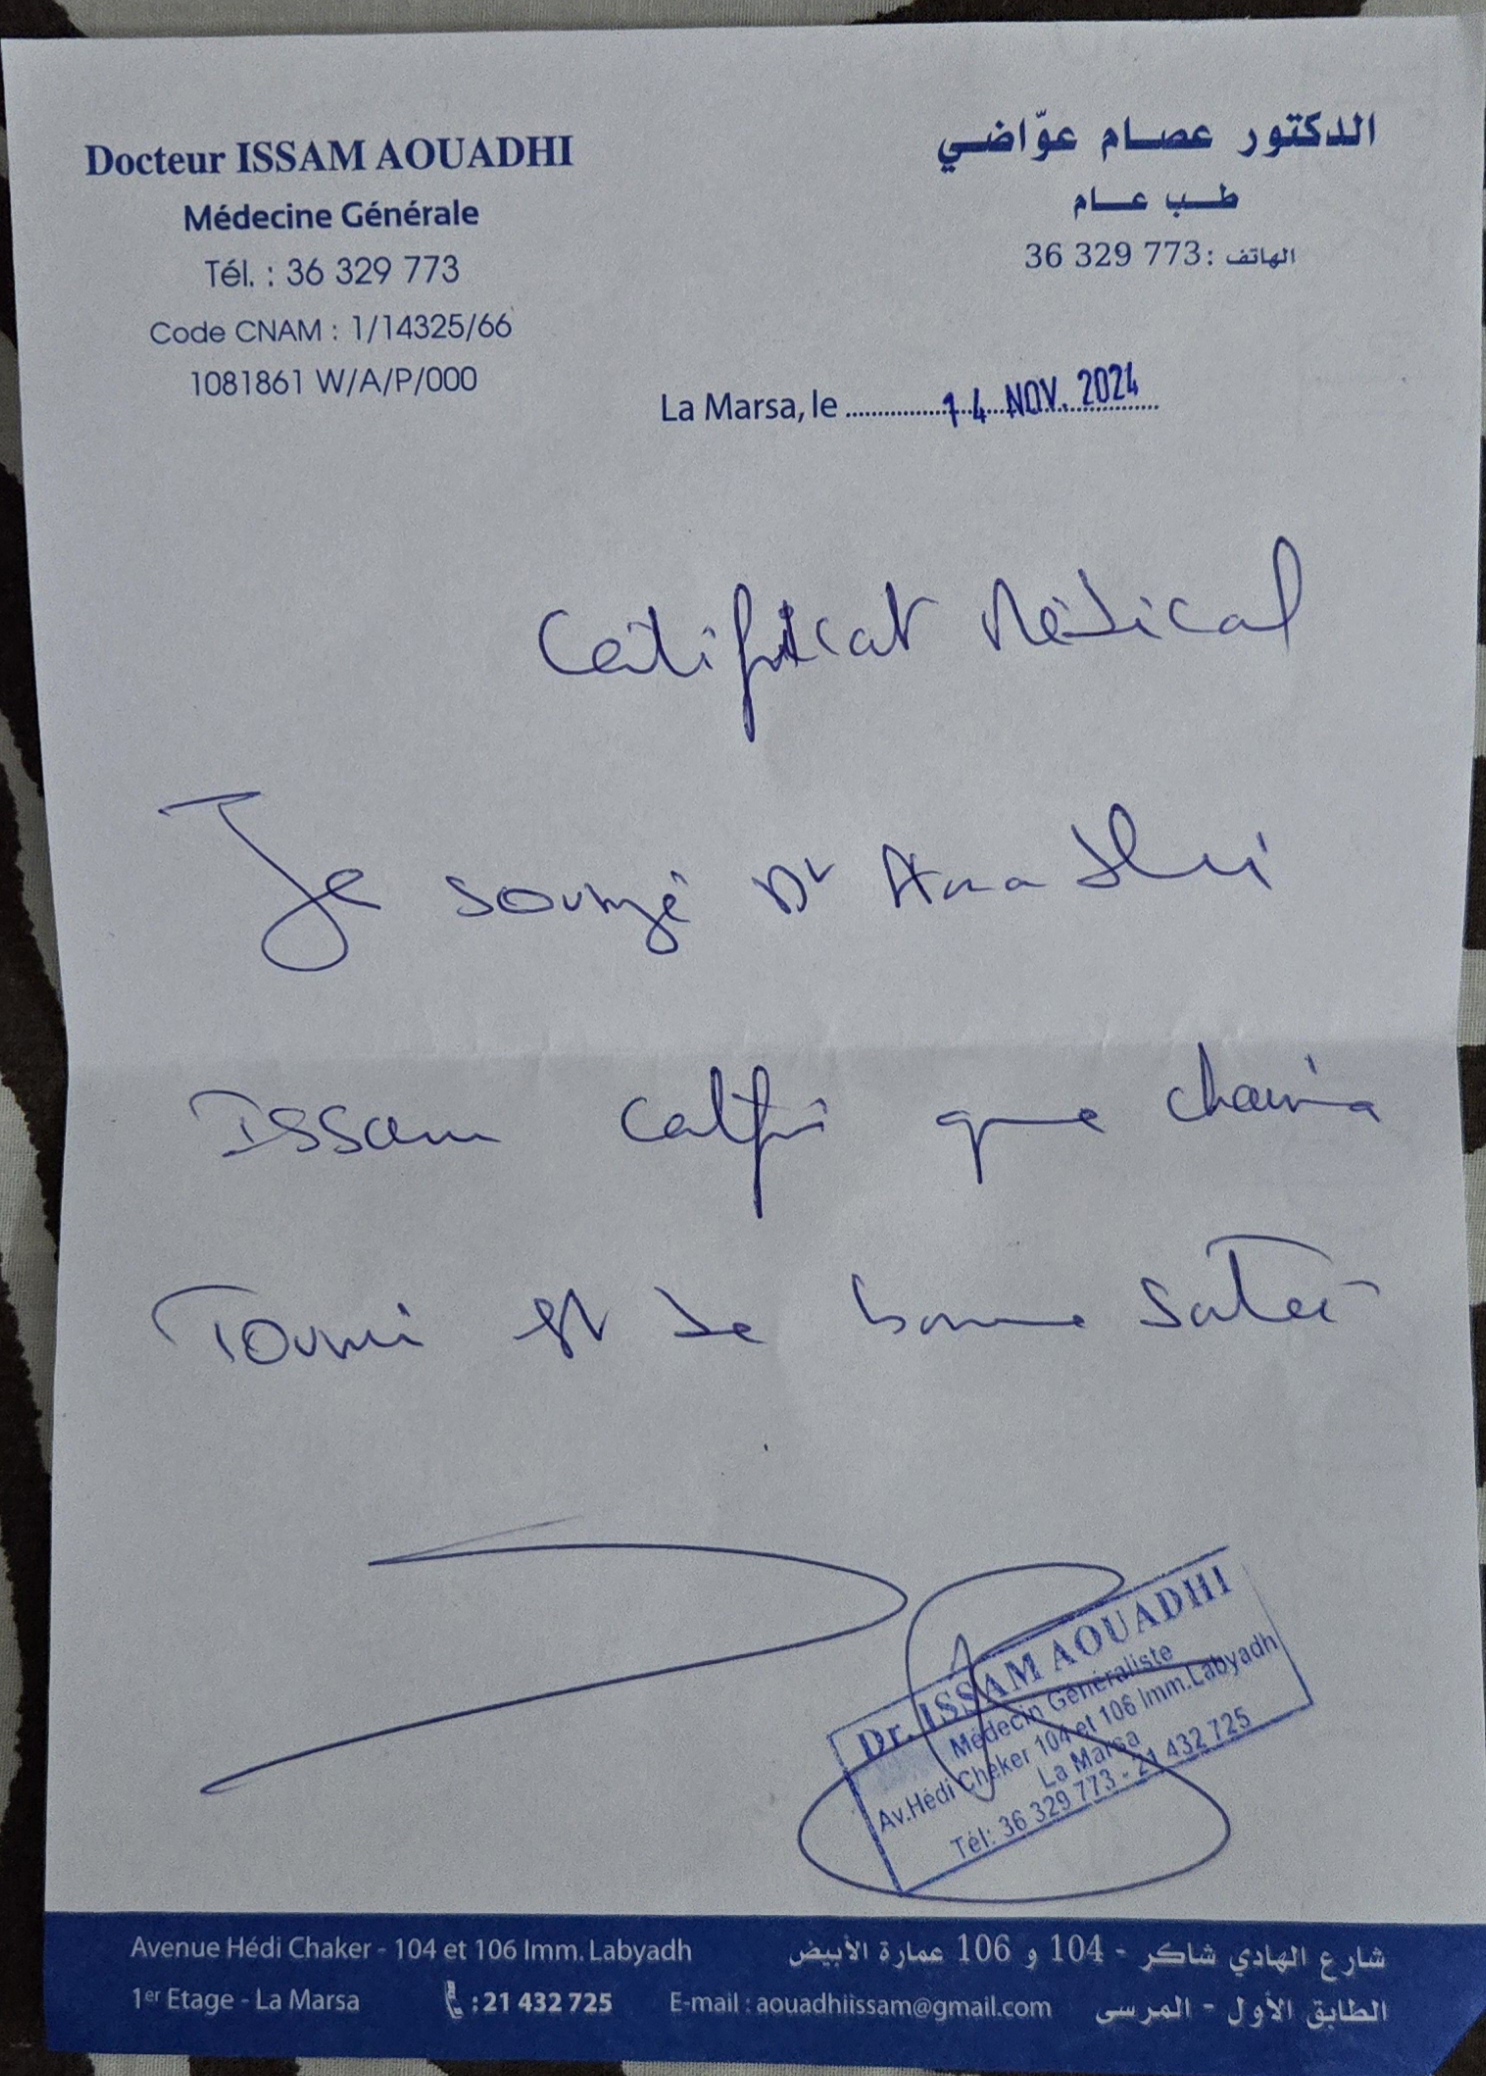 Docteur ISSAM AOUADHI
Médecine Générale
Tél. : 36 329 773
Code CNAM : 1/14325/66
1081861 W/A/P/000
الدكتور عصام عوّاضي
طب عام
الهاتف : 36 329 773
La Marsa, le 14 NOV. 2024
Certificat Médical
Je soussigné Dr Aouadhi
Issam certifie que
est de bonne santé
Dr. ISSAM AOUADHI
Médecin Généraliste
Av.Hédi Cheker 104 et 106 Imm.Labyadh
La Marsa
Tél: 36 329 773 - 21 432 725
Avenue Hédi Chaker - 104 et 106 Imm. Labyadh
1er Etage - La Marsa : 21 432 725 E-mail : aouadhiissam@gmail.com
شارع الهادي شاكر - 104 و 106 عمارة الأبيض
الطابق الأول - المرسى